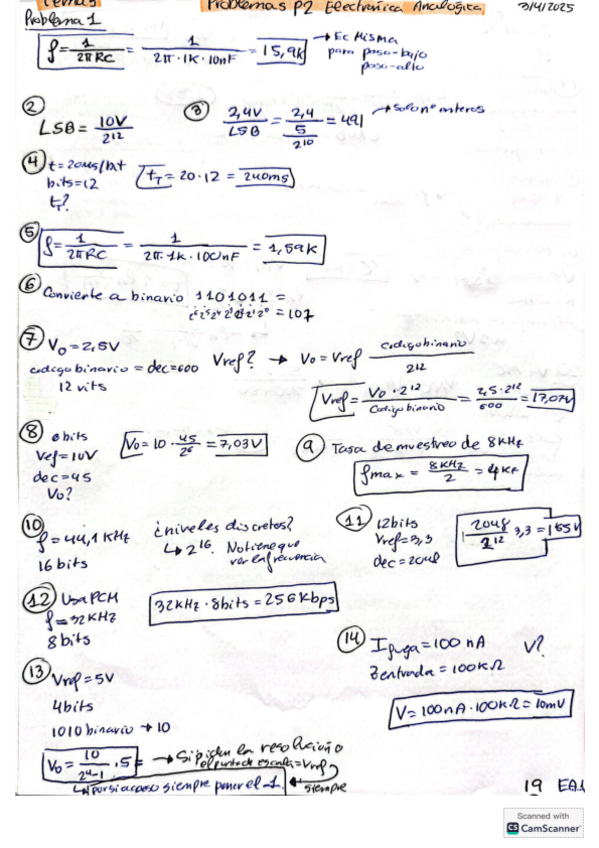 Tema 3 Problemas P2 Electronica Analogica 3/4/2025
Problema 1
f = 1/2πRC = 1/2π·1K·10nF = 15,9K → Ec Misma para paso-bajo paso-alto
② LSB = 10V/2^12
③ 2,4V/LSB = 2,4/(5/2^10) = 491 → Solo nº enteros
④ t = 20ms/bit
bits = 12
t_T?
t_T = 20·12 = 240ms
⑤ f = 1/2πRC = 1/2π·1K·100nF = 1,59K
⑥ Convierte a binario 1101011 =
2^6 2^5 2^4 2^3 2^2 2^1 2^0 = 107
⑦ Vo = 2,5V
codigo binario = dec = 600
12 bits
Vref? → Vo = Vref codigo binario/2^12
Vref = Vo·2^12/Codigo binario = 2,5·2^12/600 = 17,07V
⑧ 6bits
Vef = 10V
dec = 45
Vo?
Vo = 10·45/2^6 = 7,03V
⑨ Tasa de muestreo de 8KHz
fmax = 8KHz/2 = 4K
⑩ f = 44,1KHz
16 bits
¿niveles discretos?
↳ 2^16. No tiene que ver en frecuencia
⑪ 12bits
Vref = 3,3
dec = 2048
2048/2^12 3,3 = 1,65V
⑫ Usa PCM
f = 32KHz
8 bits
32KHz·8bits = 256Kbps
⑬ Vref = 5V
4bits
1010 binario → 10
Vo = 10/2^4-1 ·5 = → Si piden la resolución el punto de escala = Vref siempre
↳ por si acaso siempre poner el -1.
⑭ I fuga = 100 nA V?
Zentrada = 100KΩ
V = 100nA·100KΩ = 10mV
19 EA1
Scanned with
CS CamScanner